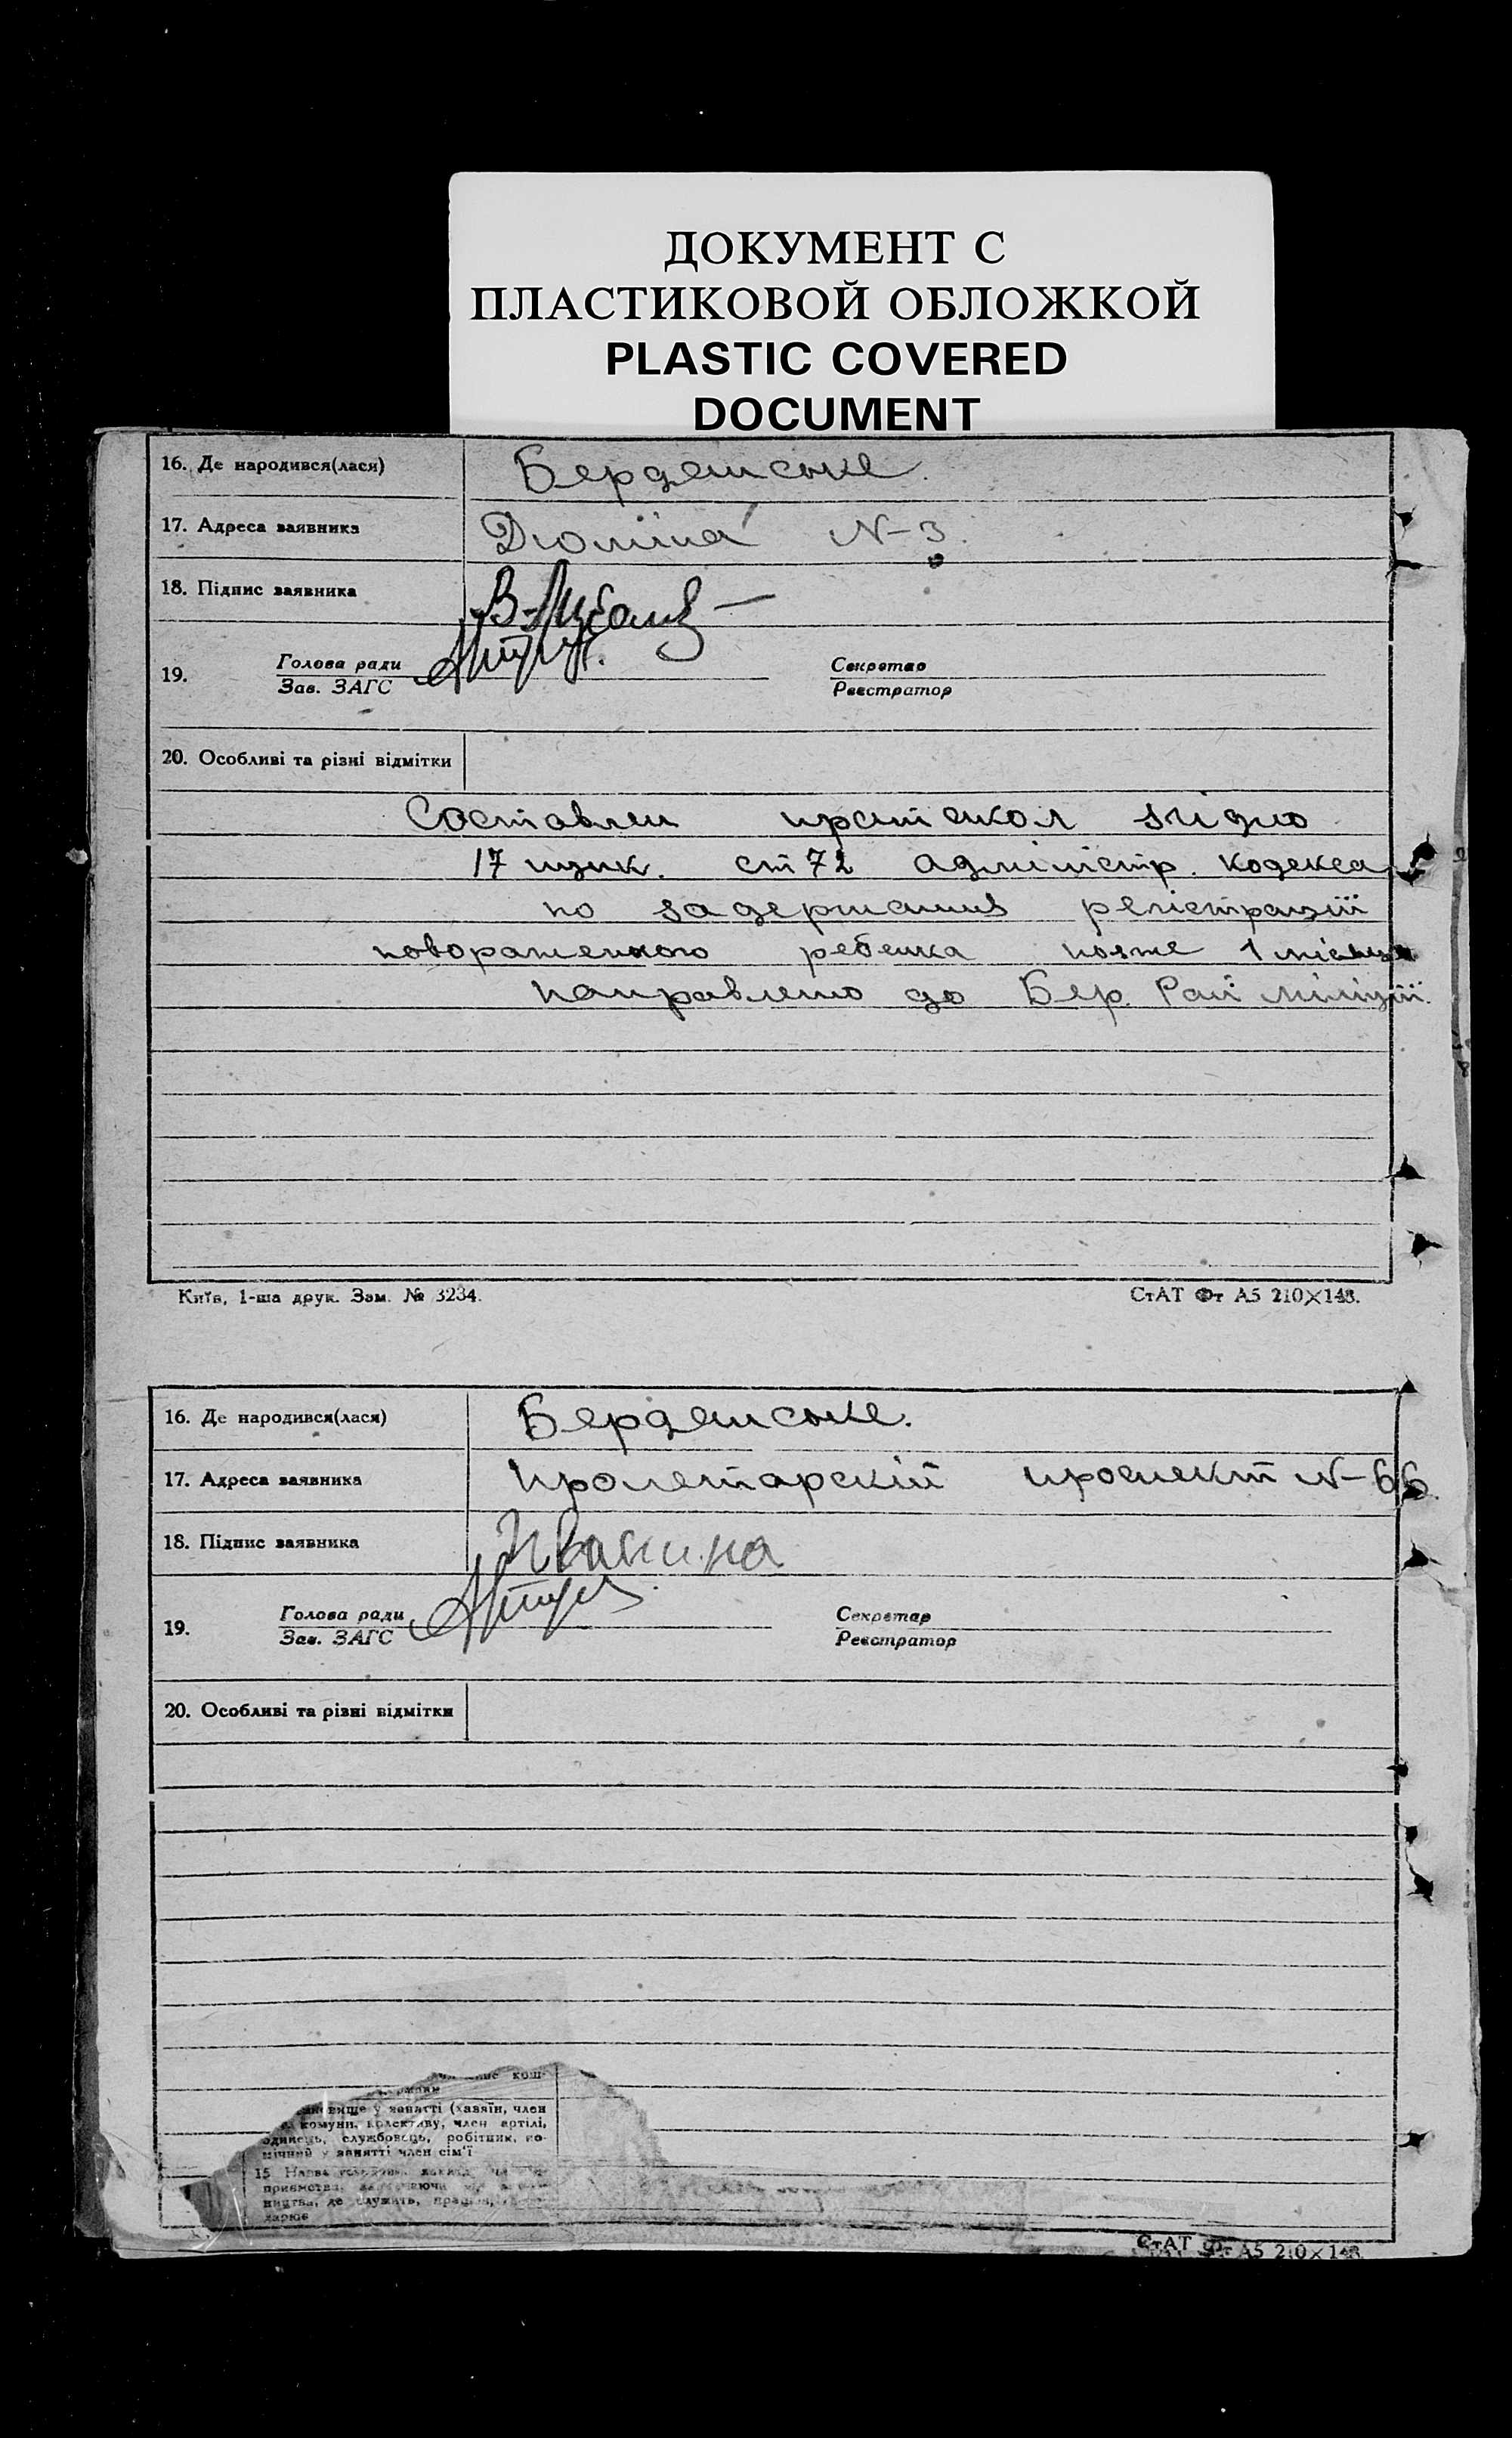 ДОКУМЕНТ С
ПЛАСТИКОВОЙ ОБЛОЖКОЙ
PLASTIC COVERED
DOCUMENT
16. Де народився(лася) Бердянське.
17. Адреса заявника N-3.
18. Підпис заявника
19. Голова ради Секретар
Зав. ЗАГС Реєстратор
20. Особливі та різні відмітки
Составлен протокол згідно
17 пунк. ст 72 адміністр. кодекса
по задержание регістрації
новорожденого ребенка позже 1 місяця
направлено до Бер. Рай міліції.
Київ, 1-ша друк. Зам. № 3234. СтАТ Фт А5 210×148.
16. Де народився(лася) Бердянське.
17. Адреса заявника Пролетарскій проспект N-66.
18. Підпис заявника Иванина
19. Голова ради Секретар
Зав. ЗАГС Реєстратор
20. Особливі та різні відмітки
кош-
вище у занятті (хазяїн, член
комуни, колективу, член артілі,
одинець, службовець, робітник, по-
мічний у занятті член сім'ї
15 Назва
приємства,
ництва, де служить,
дарює
СтАТ Фт А5 210×148.